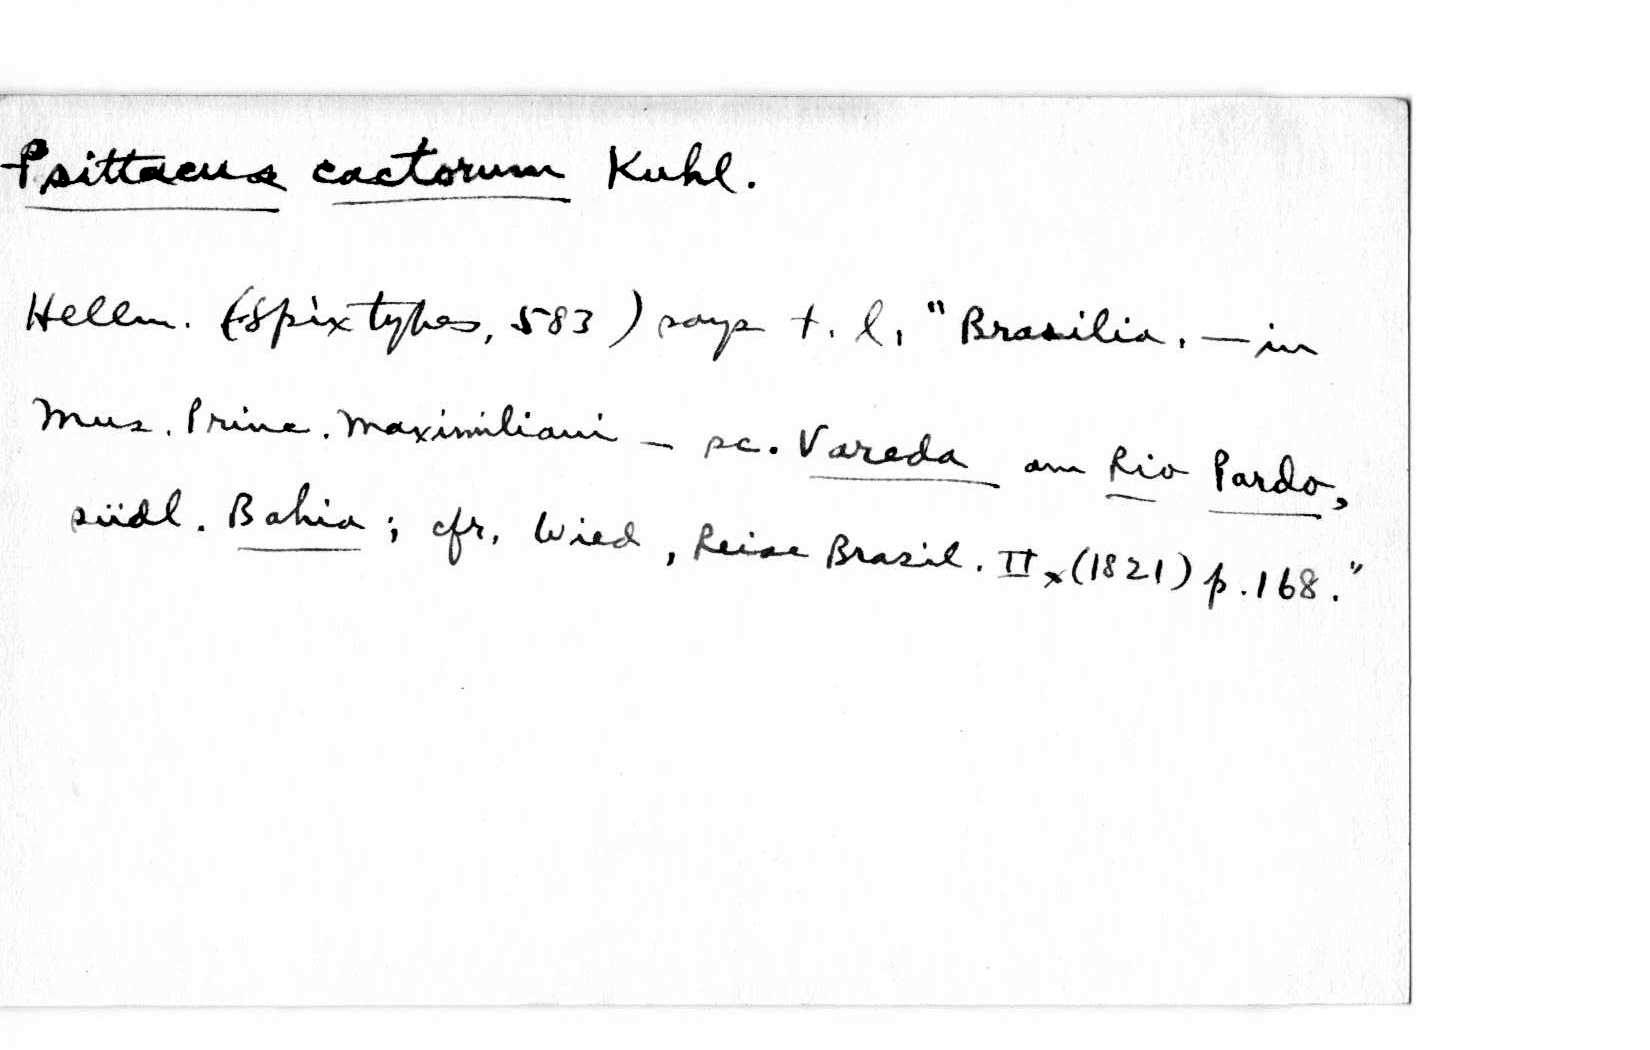 Psittacus cactorum Kuhl.
Hellm. (Spix types, 583) says t. l. "Brasilia. — in
Mus. Princ. Maximiliani — sc. Vareda am Rio Pardo,
südl. Bahia; cfr. Wied, Reise Brasil. II, (1821) p. 168."